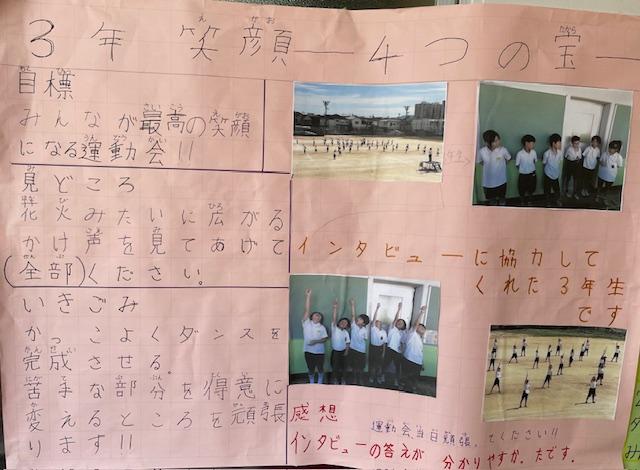 3年 笑顔―4つの宝―
目標
みんなが最高の笑顔
になる運動会!!
見どころ
花火みたいに広がる
かけ声を見てあげて
(全部)ください。
いきごみ
かっこよくダンスを
完成させる。
苦手な部分を得意に
変えるところを頑張
ります!!
インタビューに協力して
くれた3年生
です
感想
運動会当日頑張ってください!!
インタビューの答えが 分かりやすかったです。